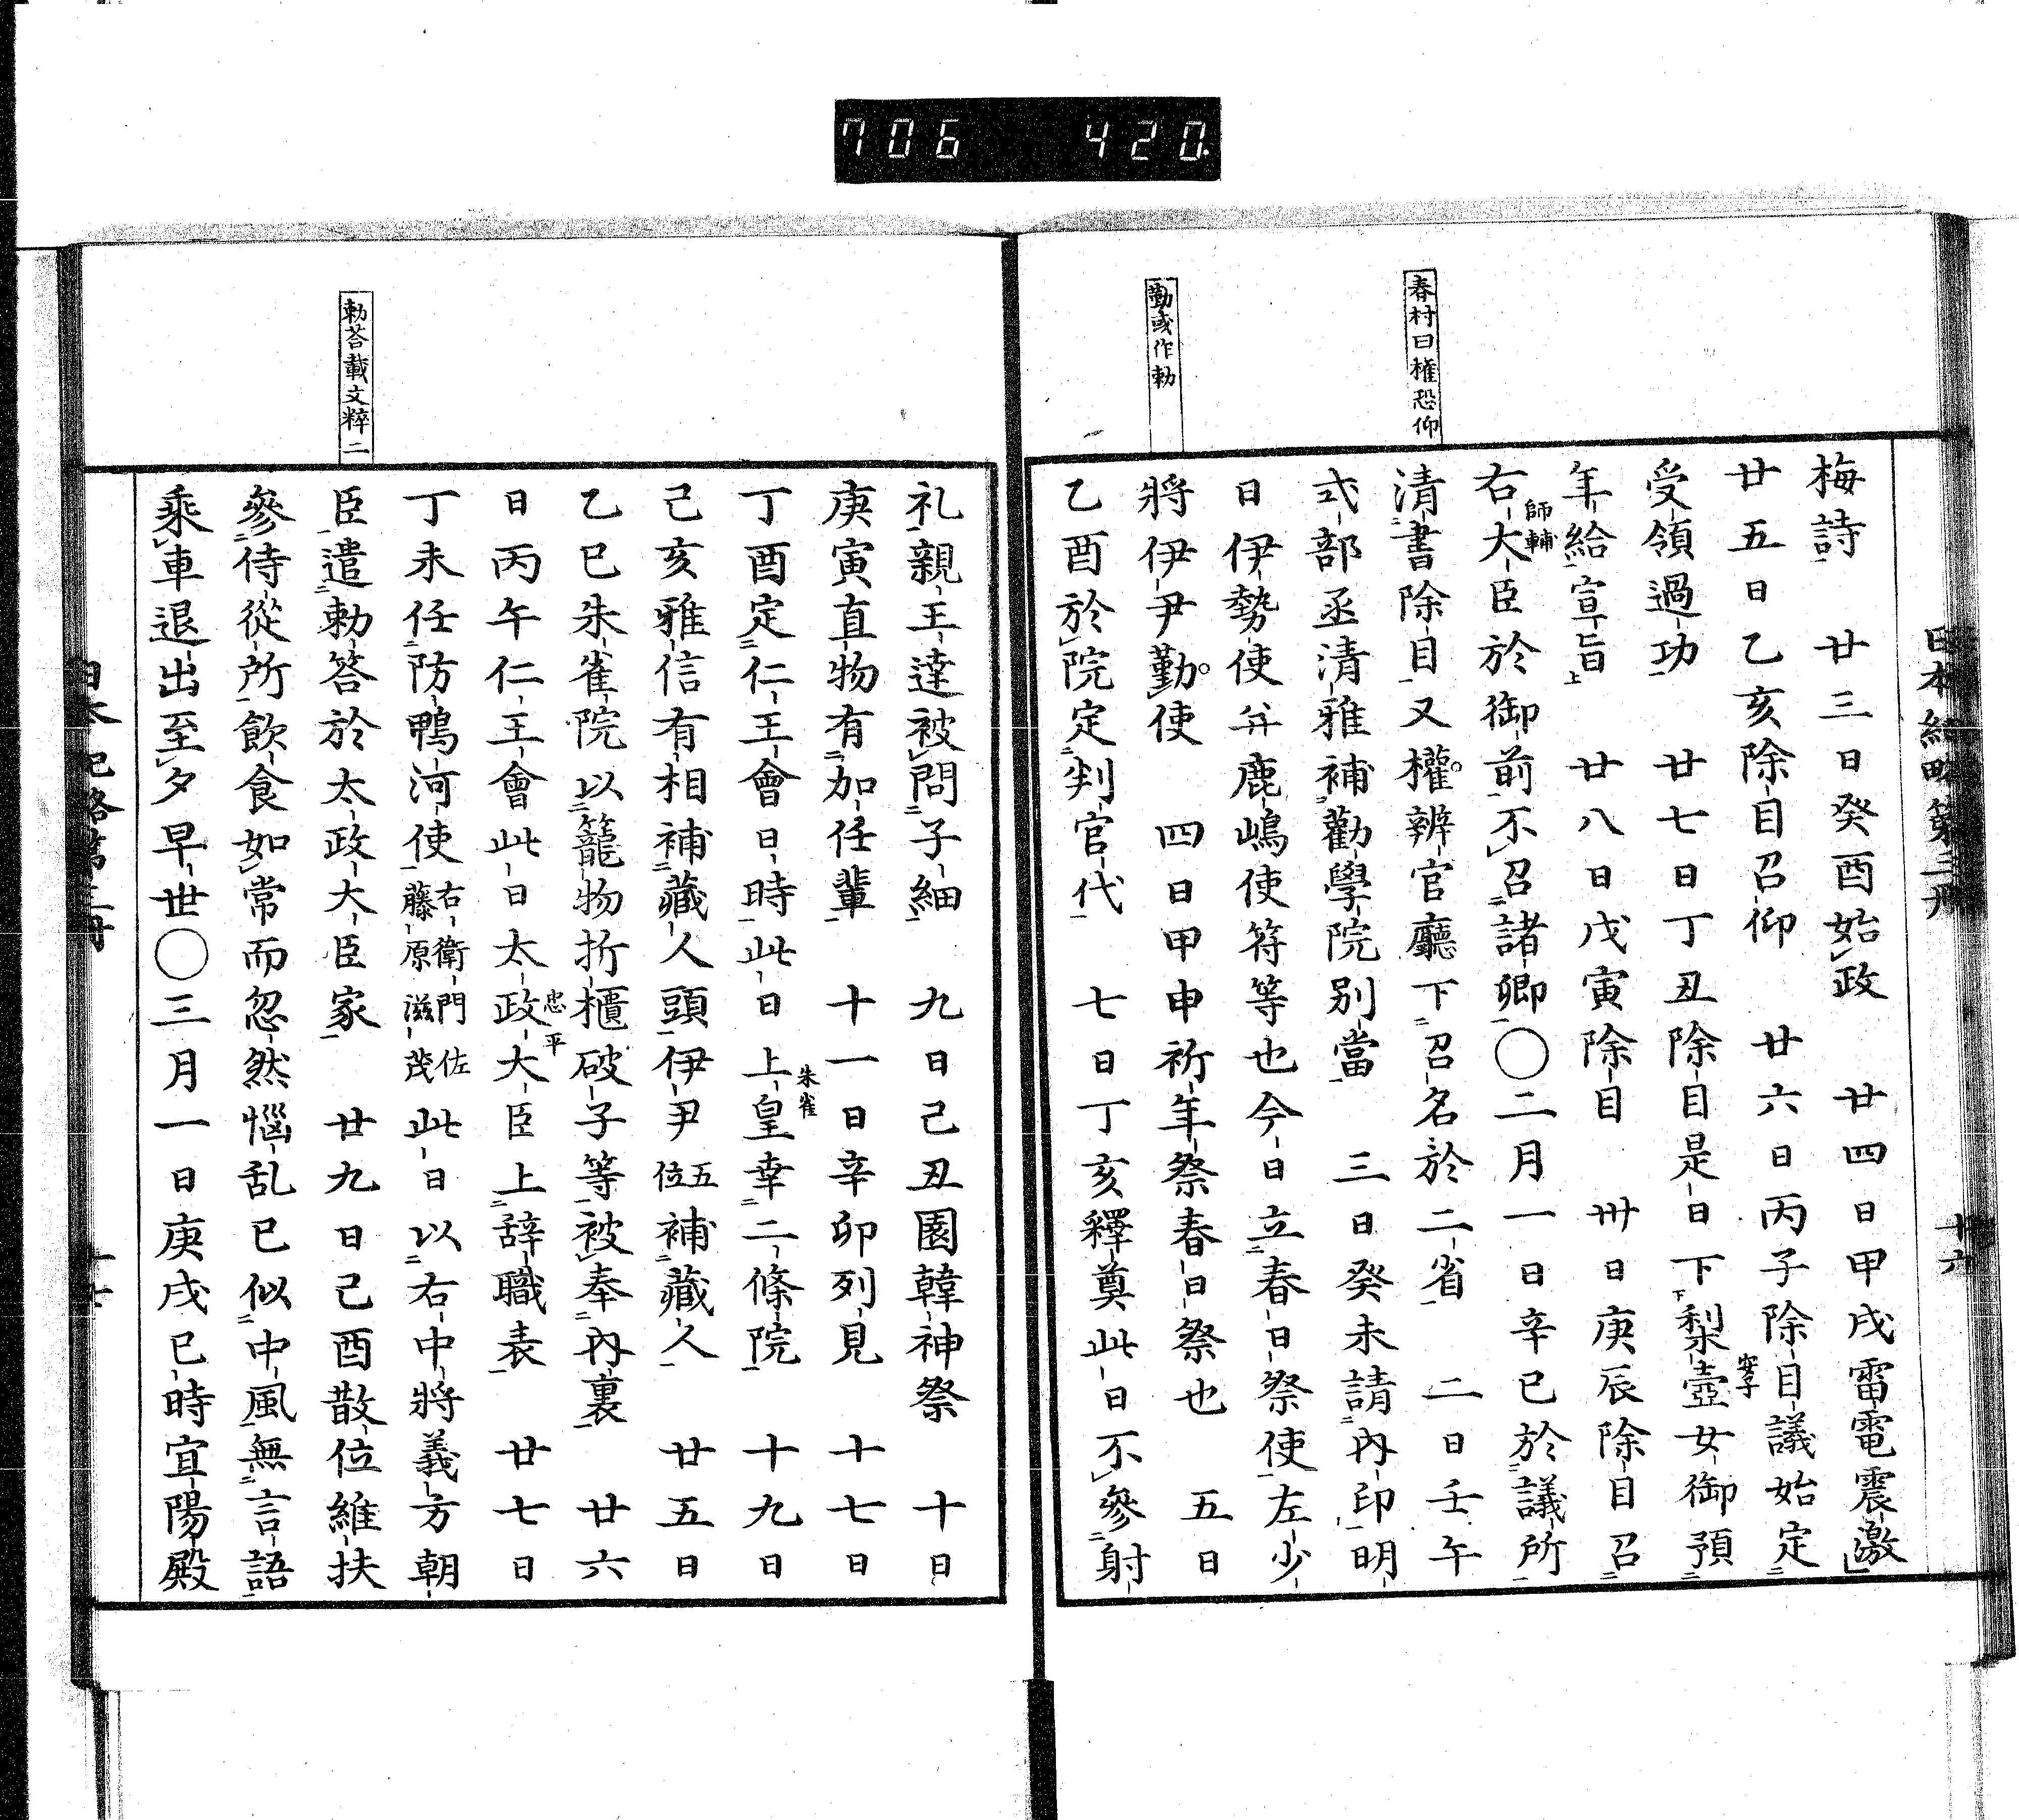 706 420
日本紀略第三冊 十六
春村曰權恐仰
勤或作勅
梅詩 廿三日癸酉始政 廿四日甲戌雷電震激
廿五日乙亥除目召仰 廿六日丙子除目議始定
受領過功 廿七日丁丑除目是日下梨壺女御預
安子
年給宣旨 廿八日戊寅除目 卅日庚辰除目召
右大臣於御前不召諸卿○二月一日辛巳於議所
師輔
清書除目又權辨官廳下召名於二省 二日壬午
式部丞清雅補勸學院別當 三日癸未請內印明
日伊勢使并鹿嶋使符等也今日立春日祭使左少
將伊尹勤使 四日甲申祈年祭春日祭也 五日
乙酉於院定判官代 七日丁亥釋奠此日不參射
勅荅載文粹二
礼親王達被問子細 九日己丑園韓神祭 十日
庚寅直物有加任輩 十一日辛卯列見 十七日
丁酉定仁王會日時此日上皇幸二條院 十九日
朱雀
己亥雅信有相補藏人頭伊尹五位補藏人 廿五日
乙巳朱雀院以籠物折櫃破子等被奉內裏 廿六
日丙午仁王會此日太政大臣上辞職表 廿七日
忠平
丁未任防鴨河使右衛門佐藤原滋茂此日以右中將義方朝
臣遣勅答於太政大臣家 廿九日己酉散位維扶
參侍從所飲食如常而忽然惱乱已似中風無言語
乘車退出至夕早世○三月一日庚戌巳時宜陽殿
日本紀略第三冊 十七